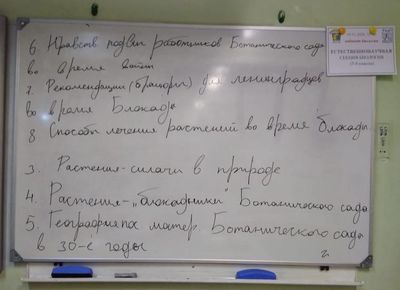 6 Нравств подвиг работников Ботанического сада
во время войны
7. Рекомендации (брошюры) для ленинградцев
во время Блокады
8 Способы лечения растений во время блокады
3. Растения-силачи в природе
4. Растения-„блокадники" Ботанического сада
5. География пос матер Ботанического сада
в 30-е годы
ЕСТЕСТВЕННОНАУЧНАЯ
СЕКЦИЯ БИОЛОГИИ